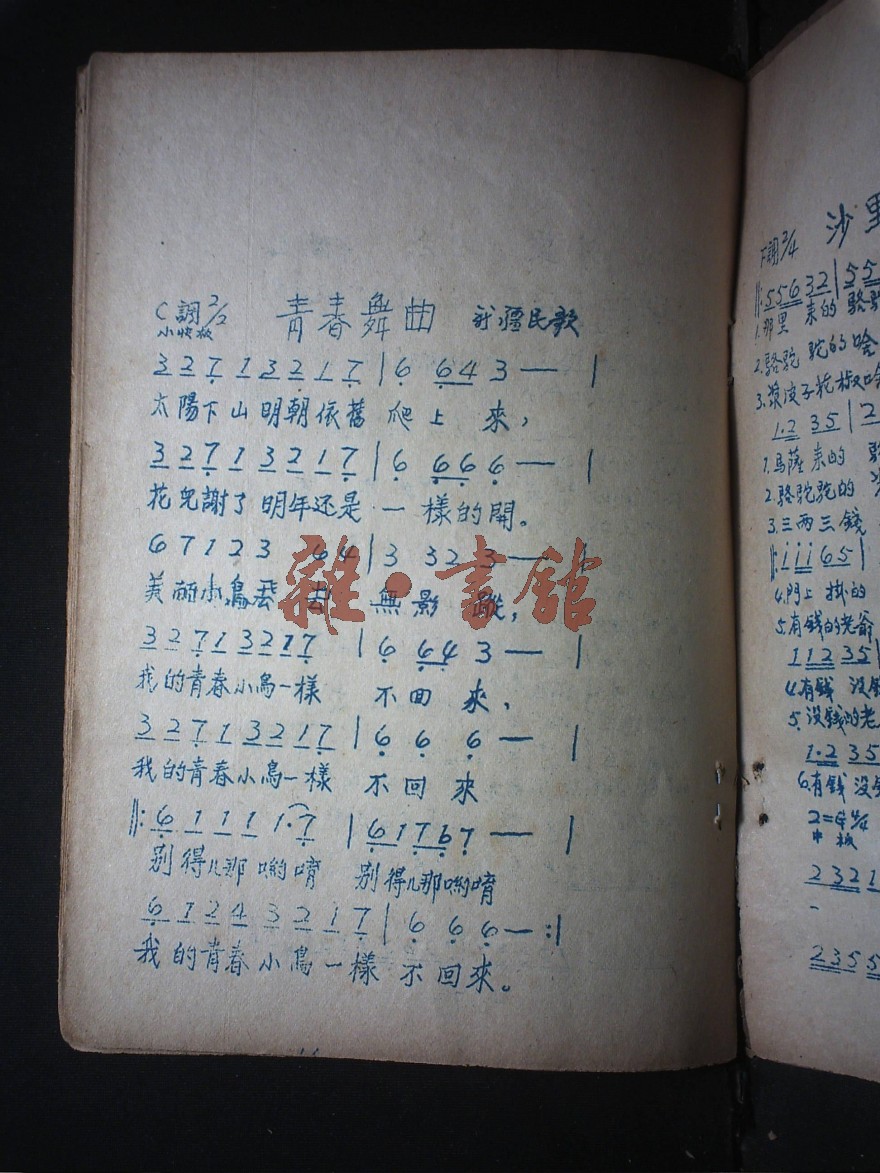 C調 2/2 青春舞曲 新疆民歌
小快板
3 2 7 1 3 2 1 7 | 6 6 4 3 — |
太陽下山明朝依舊爬上來,
3 2 7 1 3 2 1 7 | 6 6 6 6 — |
花兒謝了明年还是一樣的開。
6 7 1 2 3 4 4 | 3 3 2 3 — |
美丽小鳥飛去無影蹤,
3 2 7 1 3 2 1 7 | 6 6 4 3 — |
我的青春小鳥一樣 不回來,
3 2 7 1 3 2 1 7 | 6 6 6 — |
我的青春小鳥一樣 不回來
‖: 6 1 1 1 1 . 7 | 6 1 7 6 7 — |
别得儿那喲唷 别得儿那喲唷
6 1 2 4 3 2 1 7 | 6 6 6 — :‖
我的青春小鳥一樣不回來。
雜·書館
F調 2/4 沙里
‖: 5 5 6 3 2 | 5 5
1.那里 来的 駱駝
2.駱駝 駝的 啥
3.
1 . 2 3 5 | 2
1.馬薩 来的
2.駱駝駝的
3.三两三錢
‖: i i i 6 5 |
4.門上 掛的
5.有錢的老爺
1 1 2 3 5
4.有錢 没
5.没錢的老
1 . 2 3 5
6.有錢 没
2 3 2 1
2 3 5 5